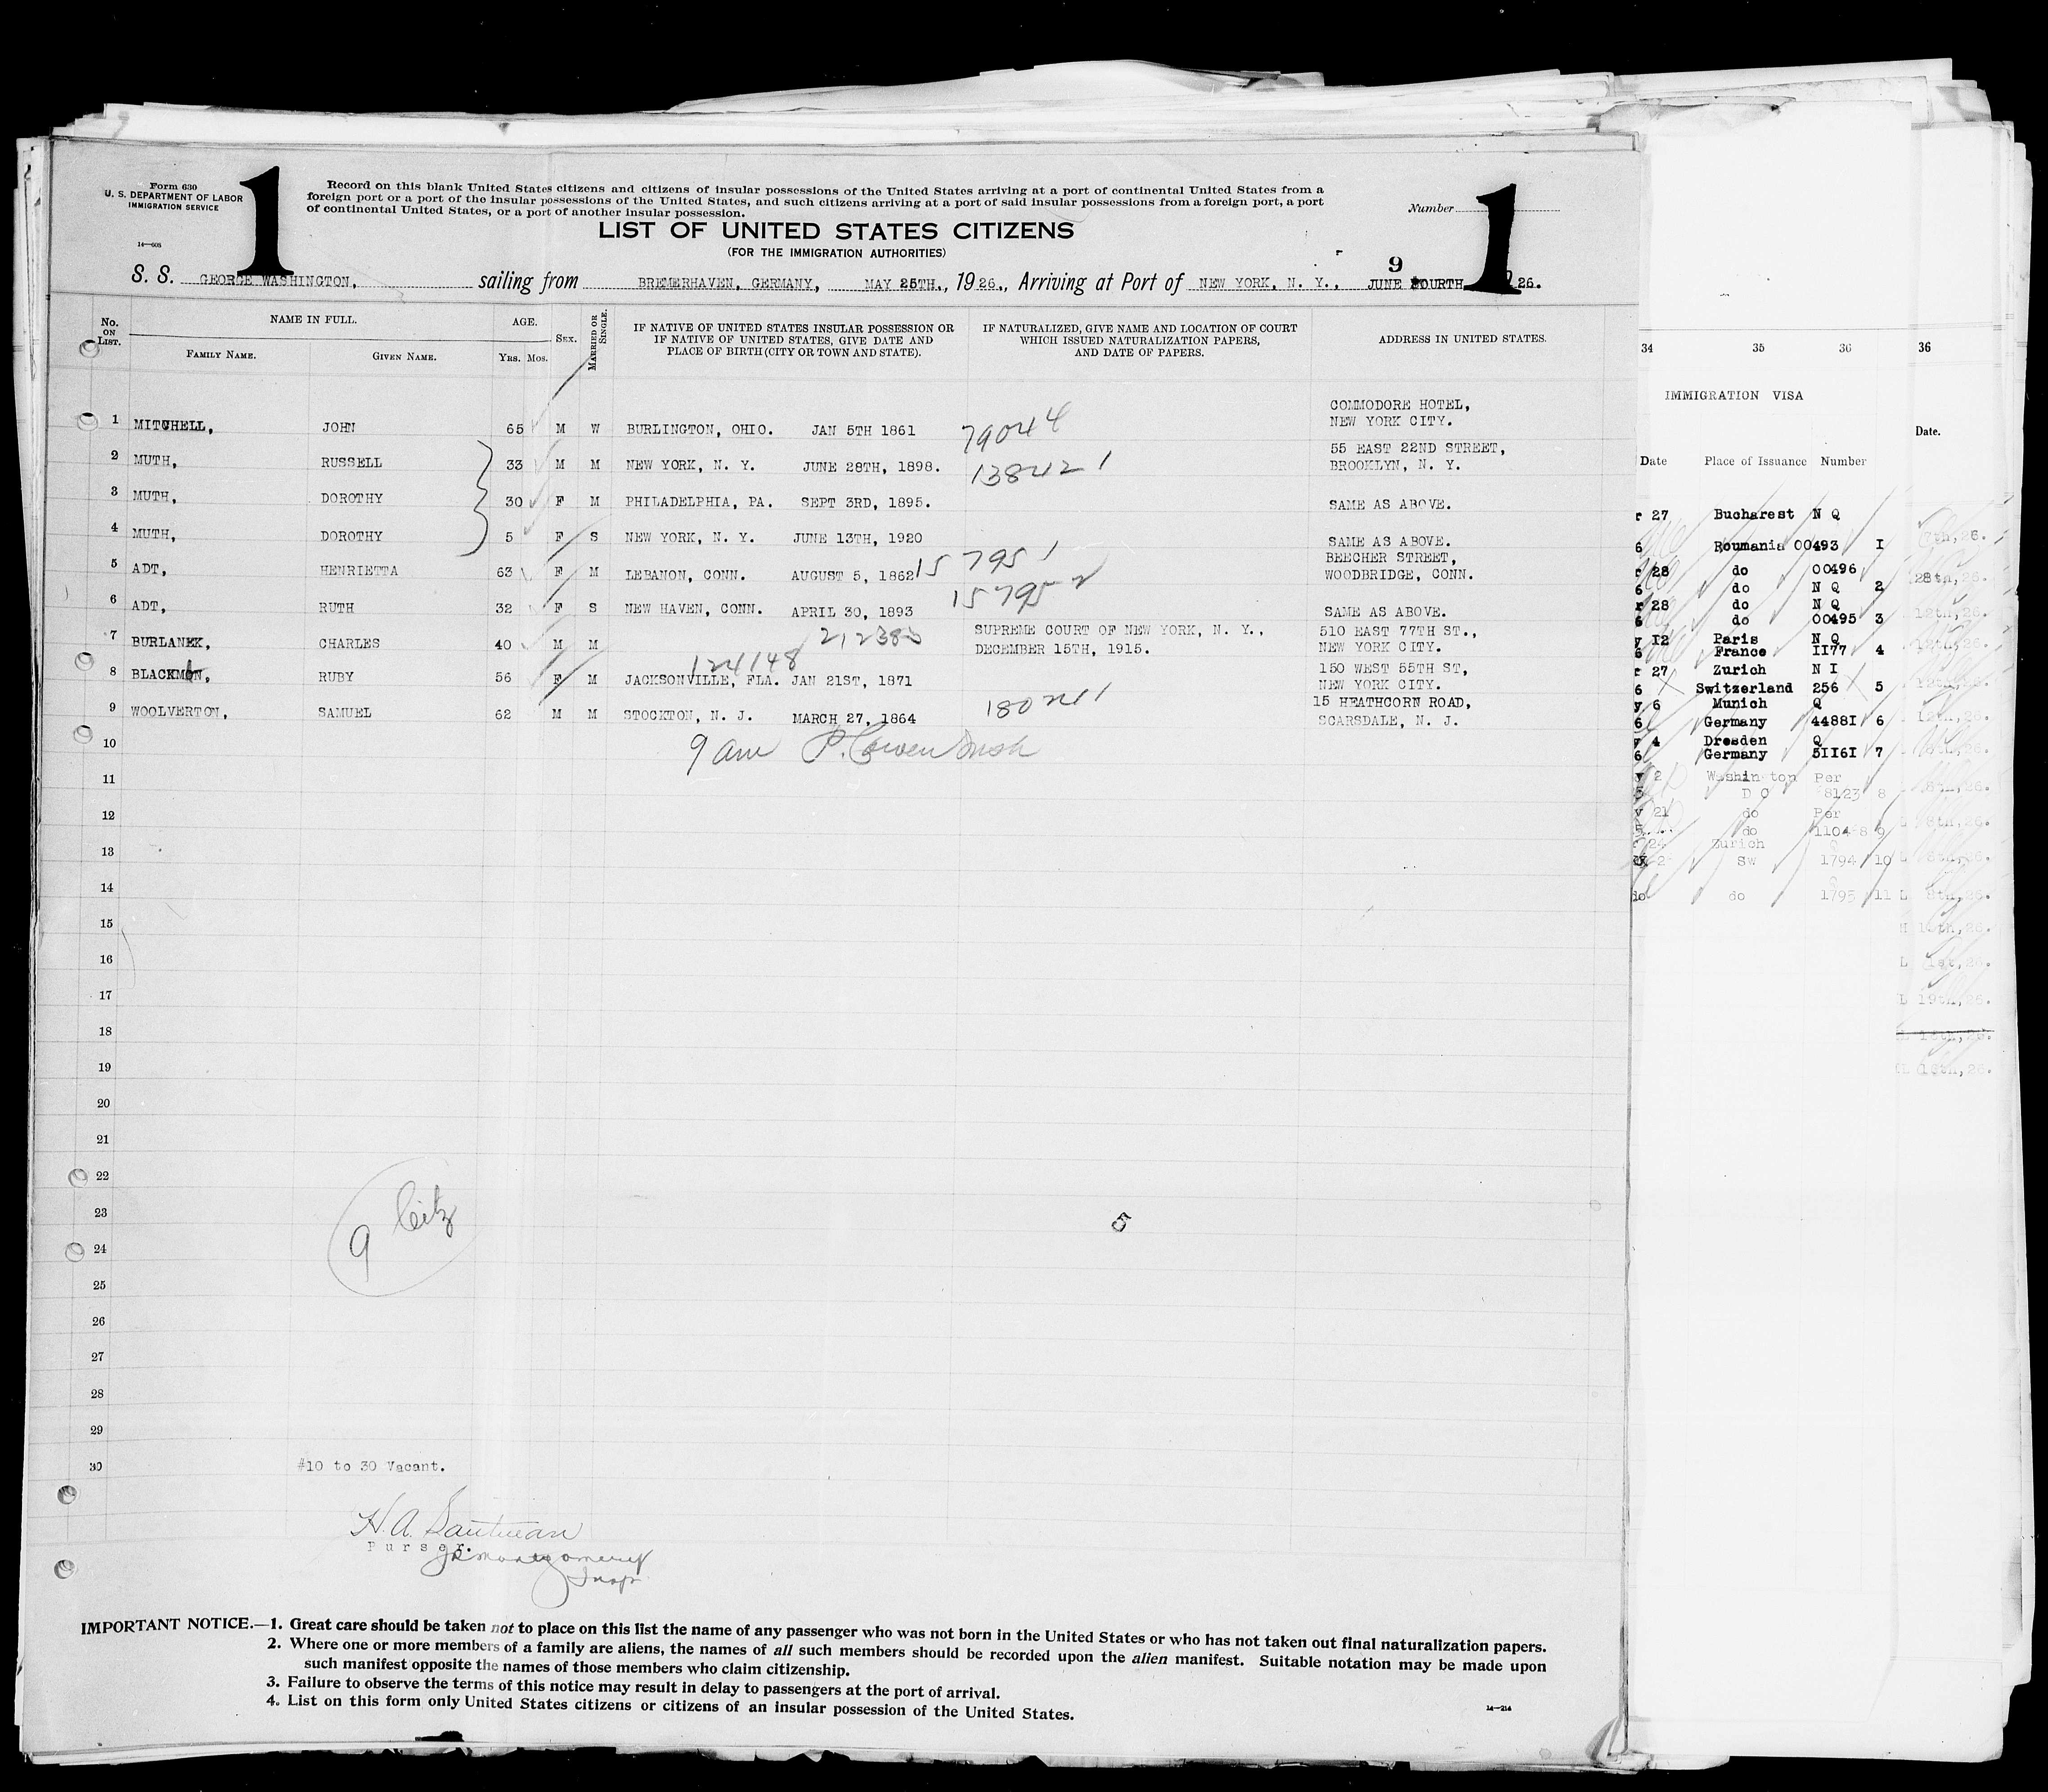 Form 630
U. S. DEPARTMENT OF LABOR
IMMIGRATION SERVICE
14—608
1
Record on this blank United States citizens and citizens of insular possessions of the United States arriving at a port of continental United States from a
foreign port or a port of the insular possessions of the United States, and such citizens arriving at a port of said insular possessions from a foreign port, a port
of continental United States, or a port of another insular possession.
Number 1
LIST OF UNITED STATES CITIZENS
(FOR THE IMMIGRATION AUTHORITIES)
S. S. GEORGE WASHINGTON, sailing from BREMERHAVEN, GERMANY, MAY 25TH., 1926., Arriving at Port of NEW YORK, N. Y., JUNE 9 FOURTH 26.
No. ON LIST. NAME IN FULL. AGE. SEX. MARRIED OR SINGLE. IF NATIVE OF UNITED STATES INSULAR POSSESSION OR IF NATIVE OF UNITED STATES, GIVE DATE AND PLACE OF BIRTH (CITY OR TOWN AND STATE). IF NATURALIZED, GIVE NAME AND LOCATION OF COURT WHICH ISSUED NATURALIZATION PAPERS, AND DATE OF PAPERS. ADDRESS IN UNITED STATES.
FAMILY NAME. GIVEN NAME. YRS. MOS.
1 MITCHELL, JOHN 65 M W BURLINGTON, OHIO. JAN 5TH 1861 79044 COMMODORE HOTEL, NEW YORK CITY.
2 MUTH, RUSSELL 33 M M NEW YORK, N. Y. JUNE 28TH, 1898. 138421 55 EAST 22ND STREET, BROOKLYN, N. Y.
3 MUTH, DOROTHY 30 F M PHILADELPHIA, PA. SEPT 3RD, 1895. SAME AS ABOVE.
4 MUTH, DOROTHY 5 F S NEW YORK, N. Y. JUNE 13TH, 1920 SAME AS ABOVE.
5 ADT, HENRIETTA 63 F M LEBANON, CONN. AUGUST 5, 1862 157951 BEECHER STREET, WOODBRIDGE, CONN.
6 ADT, RUTH 32 F S NEW HAVEN, CONN. APRIL 30, 1893 157952 SAME AS ABOVE.
7 BURLANEK, CHARLES 40 M M 212383 SUPREME COURT OF NEW YORK, N. Y., DECEMBER 15TH, 1915. 510 EAST 77TH ST., NEW YORK CITY.
8 BLACKMAN, RUBY 56 F M 124148 JACKSONVILLE, FLA. JAN 21ST, 1871 150 WEST 55TH ST, NEW YORK CITY.
9 WOOLVERTON, SAMUEL 62 M M STOCKTON, N. J. MARCH 27, 1864 180211 15 HEATHCORN ROAD, SCARSDALE, N. J.
10 9 am
11
12
13
14
15
16
17
18
19
20
21
22
23 5
24
25
26
27
28
29
30
9 Citz
#10 to 30 Vacant.
H. A.
Purser.
Montgomery
Insp
IMPORTANT NOTICE.—1. Great care should be taken not to place on this list the name of any passenger who was not born in the United States or who has not taken out final naturalization papers.
2. Where one or more members of a family are aliens, the names of all such members should be recorded upon the alien manifest. Suitable notation may be made upon
such manifest opposite the names of those members who claim citizenship.
3. Failure to observe the terms of this notice may result in delay to passengers at the port of arrival.
4. List on this form only United States citizens or citizens of an insular possession of the United States.
14—214
34 35 36 36
IMMIGRATION VISA
Date.
Date Place of Issuance Number
r 27 Bucharest N Q
6 Roumania 00493 I
r 28 do 00496
6 do N Q 2
r 28 do N Q
6 do 00495 3
y 12 Paris N Q
6 France II77 4
r 27 Zurich N I
6 Switzerland 256 5
y 6 Munich Q
6 Germany 4488I 6
y 4 Dresden Q
6 Germany 5II6I 7
y 2 Washington Per
5 D C 8123 8
v 21 do Per
5 do 11048 9
24 Zurich
2 SW 1794 10
do do 1795 11
7th, 26.
28th, 26.
12th, 26.
12th, 26.
12th, 26.
8th, 26.
8th, 26.
8th, 26.
L 8th, 26.
H 10th, 26.
L 1st, 26.
L 19th, 26.
L 18th, 26.
18th, 26.